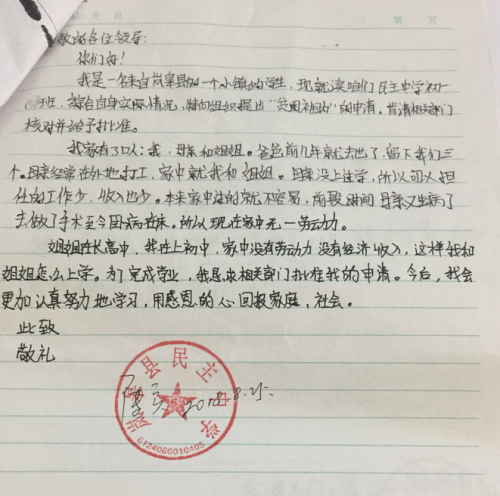 敬的各位领导:
你们好!
我是一名来自岚皋县的一个小镇的学生,现就读咱们民主中学初一
班,综合自身实际情况,特向组织提出“受困补助”的申请。肯请相关部门
核对并给予批准。
我家有3口人:我,母亲和姐姐。爸爸前几年就去世了,留下我们三
个。母亲经常在外地打工,家中就我和姐姐。母亲没上过学,所以可以担
任的工作少,收入也少。本来家中过的就不容易,前段时间母亲又生病了
去做了手术至今因病在床。所以现在家中无一劳动力。
姐姐在上高中,我在上初中,家中没有劳动力没有经济收入,这样我和
姐姐怎么上学。为了完成学业,我恳求相关部门批准我的申请。今后,我会
更加认真努力地学习,用感恩的心回报家庭,社会。
此致
敬礼
岚皋县民主中学
2018.8.25.
6124060010405